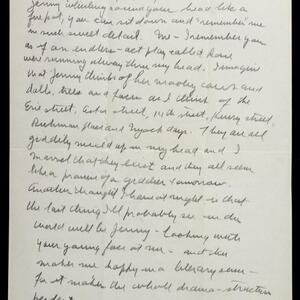 Jenny whirling around your head like a
fire pot, you can sit down and remember me
in such sweet detail. Me - I remember you
as if an endless-act play called Rose
were running always thru my head. I imagine
that Jenny thinks of her woolly cows and
dolls, trees and faces as I think of the
Erie street, Astor street, 11th street, Henry street,
Buckman place and Nyack days. They are all
giddily mixed up in my head and I
marvel that they exist and they all seem
like a promise of a golden tomorrow.
Another thought I have at night is that
the last thing I'll probably see in the
world will be Jenny - looking with
your young face at me - and this
makes me happy in a literary sense -
for it makes the whole drama-structure
perfect